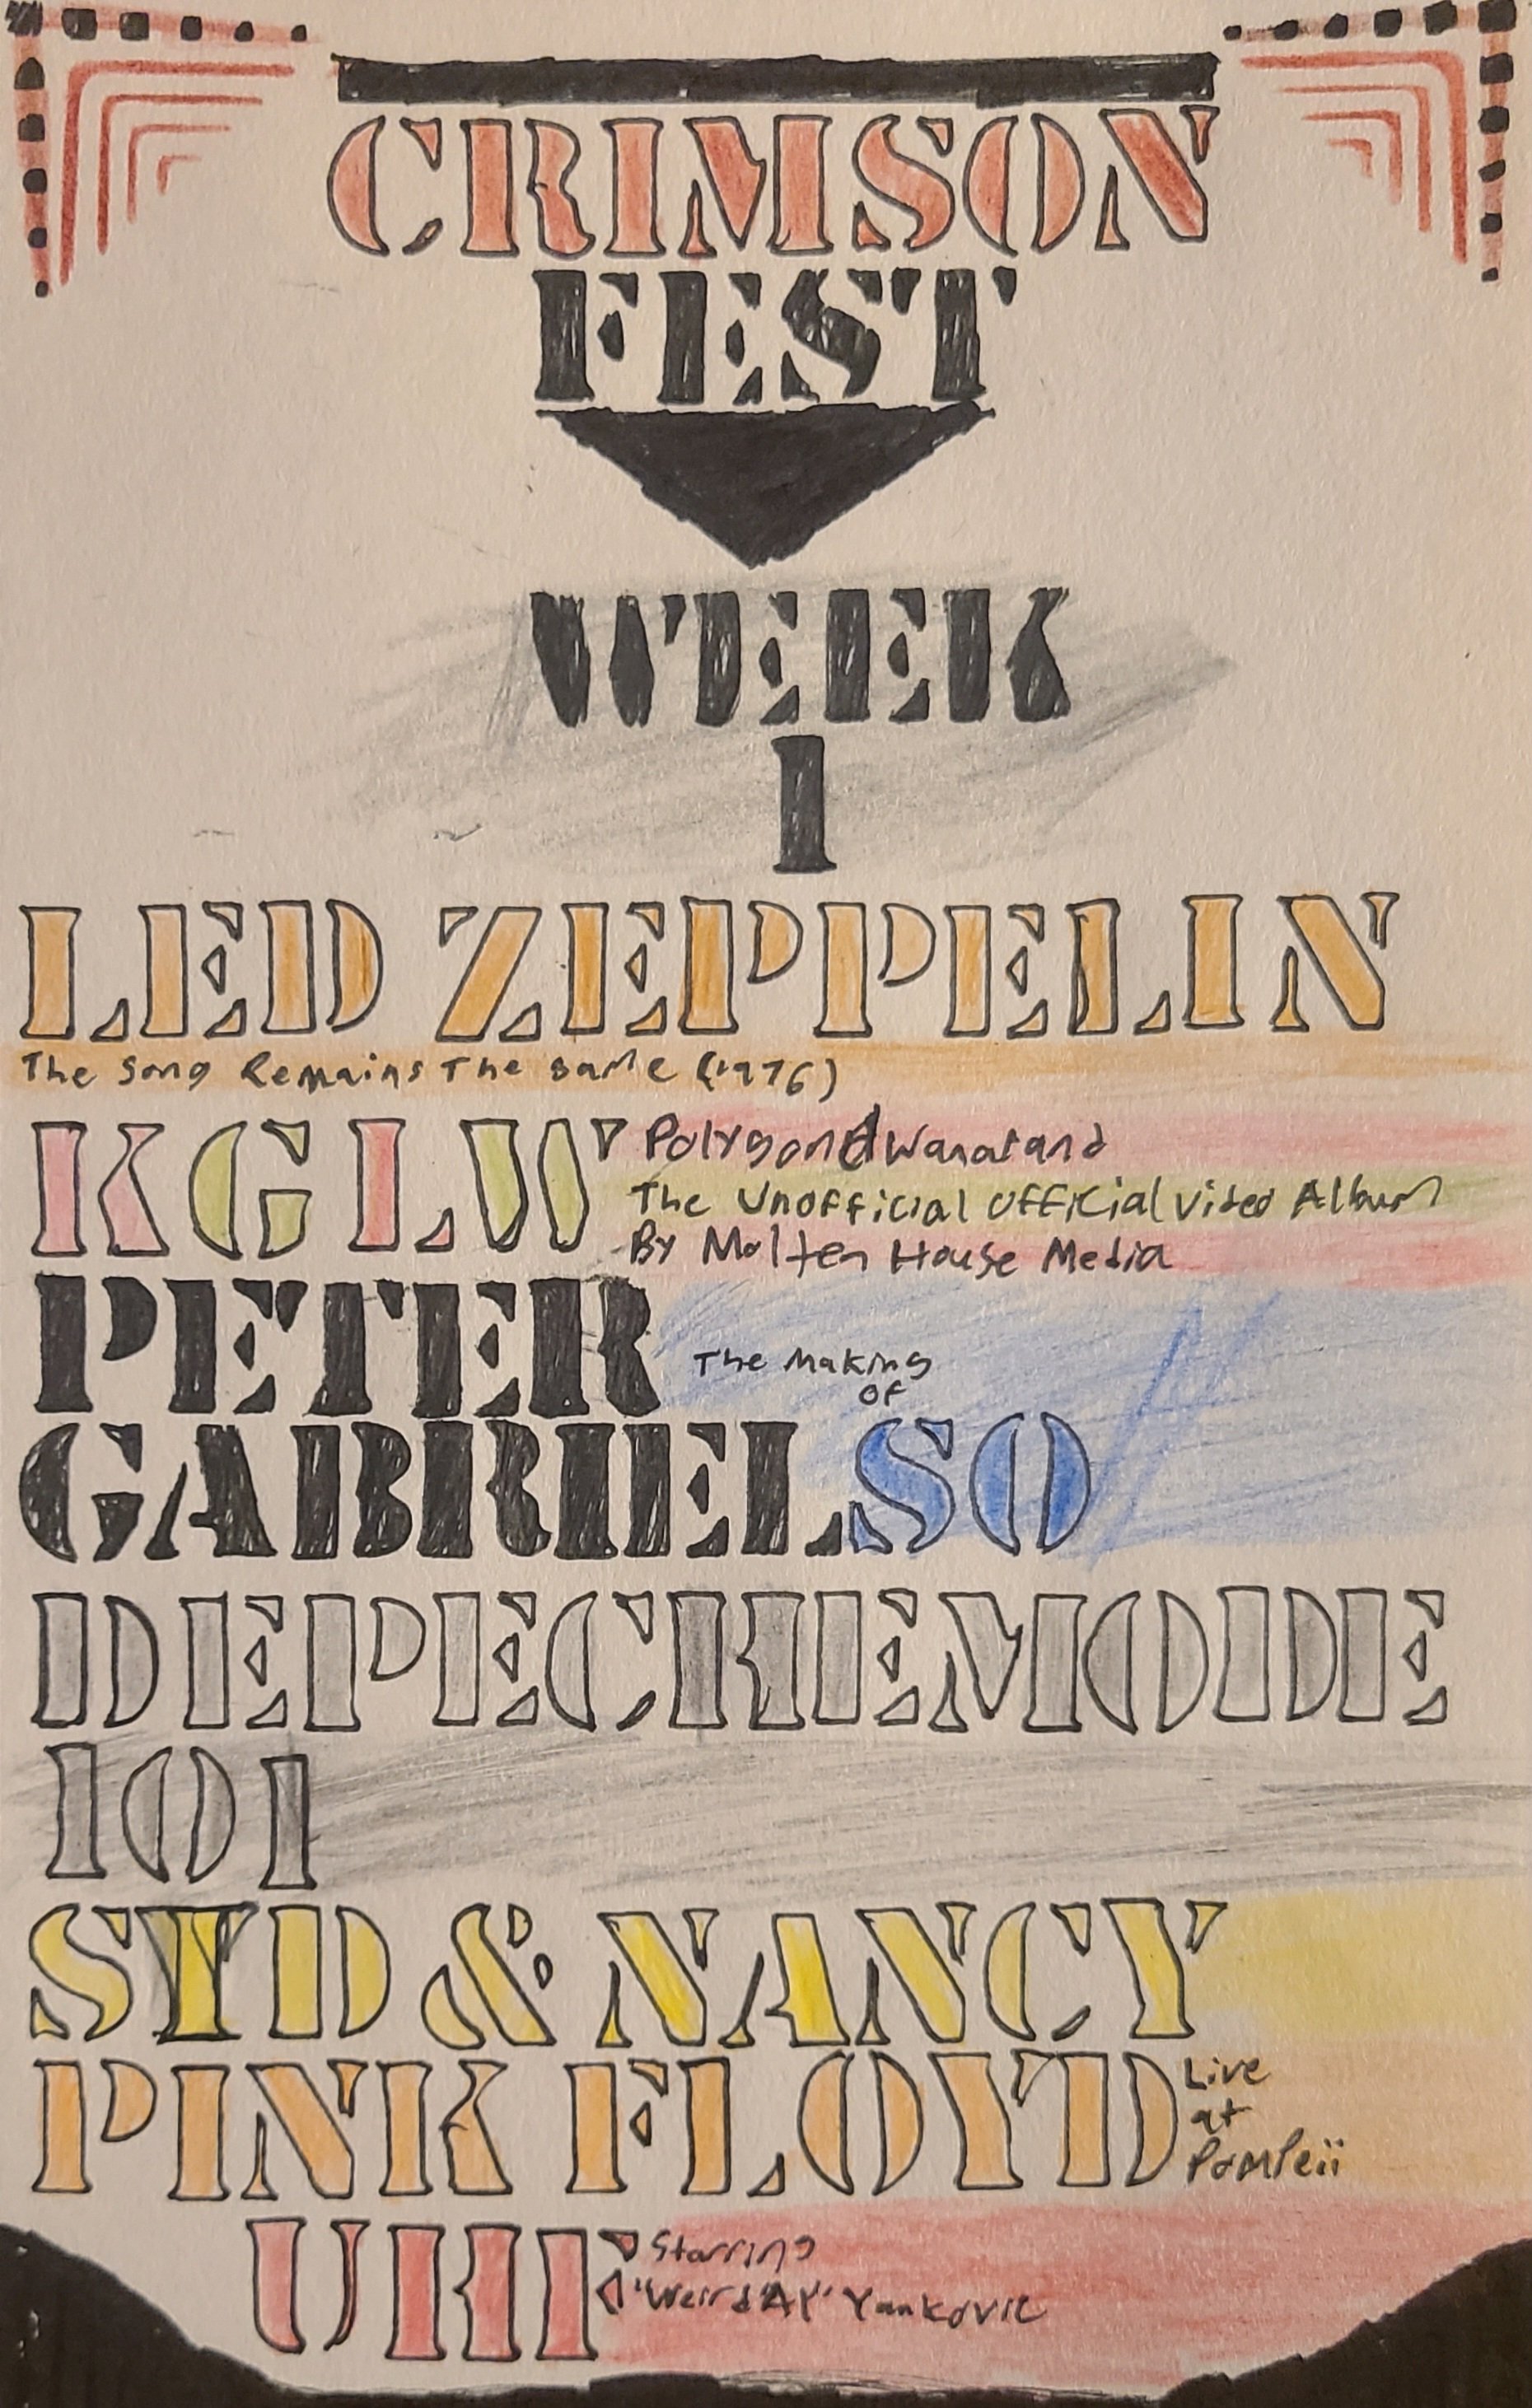 CRIMSON
FEST
WEEK
1
LED ZEPPELIN
The Song Remains The Same (1976)
KGLW
Polygondwanaland
The Unofficial Official Video Album
By Molten House Media
PETER
GABRIEL
The Making
of
SO
DEPECHE MODE
101
SYD & NANCY
PINK FLOYD
Live
at
Pompeii
UHF
Starring
"Weird "Al" Yankovic